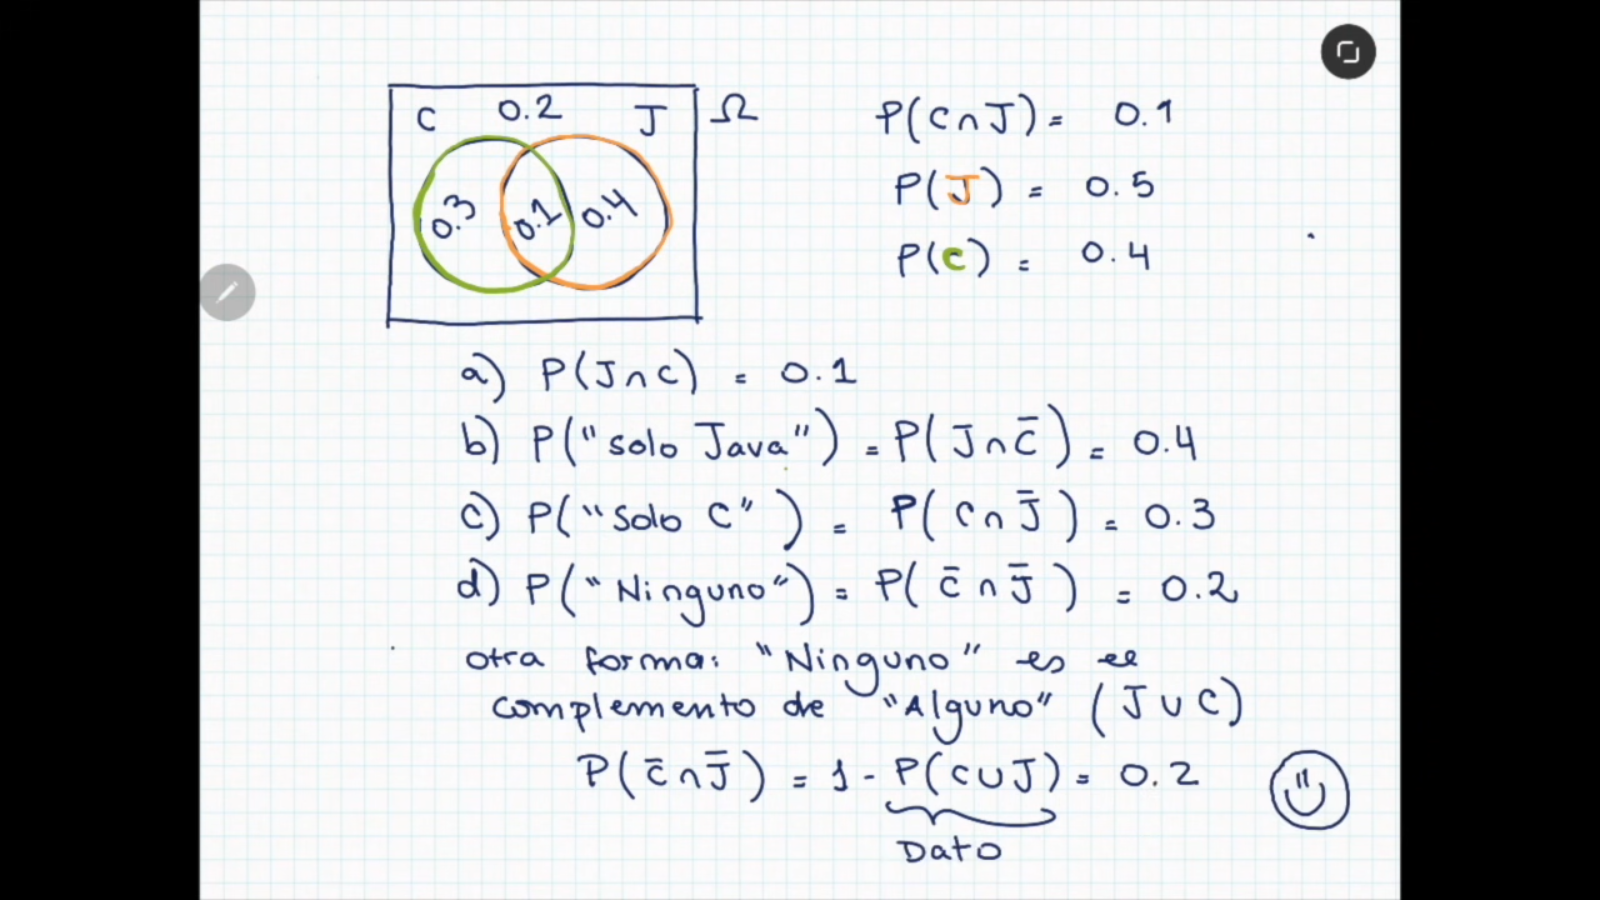 C 0.2 J Ω
0.3 0.1 0.4
P(C∩J) = 0.1
P(J) = 0.5
P(C) = 0.4
a) P(J∩C) = 0.1
b) P("solo Java") = P(J∩C̄) = 0.4
c) P("Solo C") = P(C∩J̄) = 0.3
d) P("Ninguno") = P(C̄∩J̄) = 0.2
otra forma: "Ninguno" es el
complemento de "Alguno" (J∪C)
P(C̄∩J̄) = 1 - P(C∪J) = 0.2
Dato